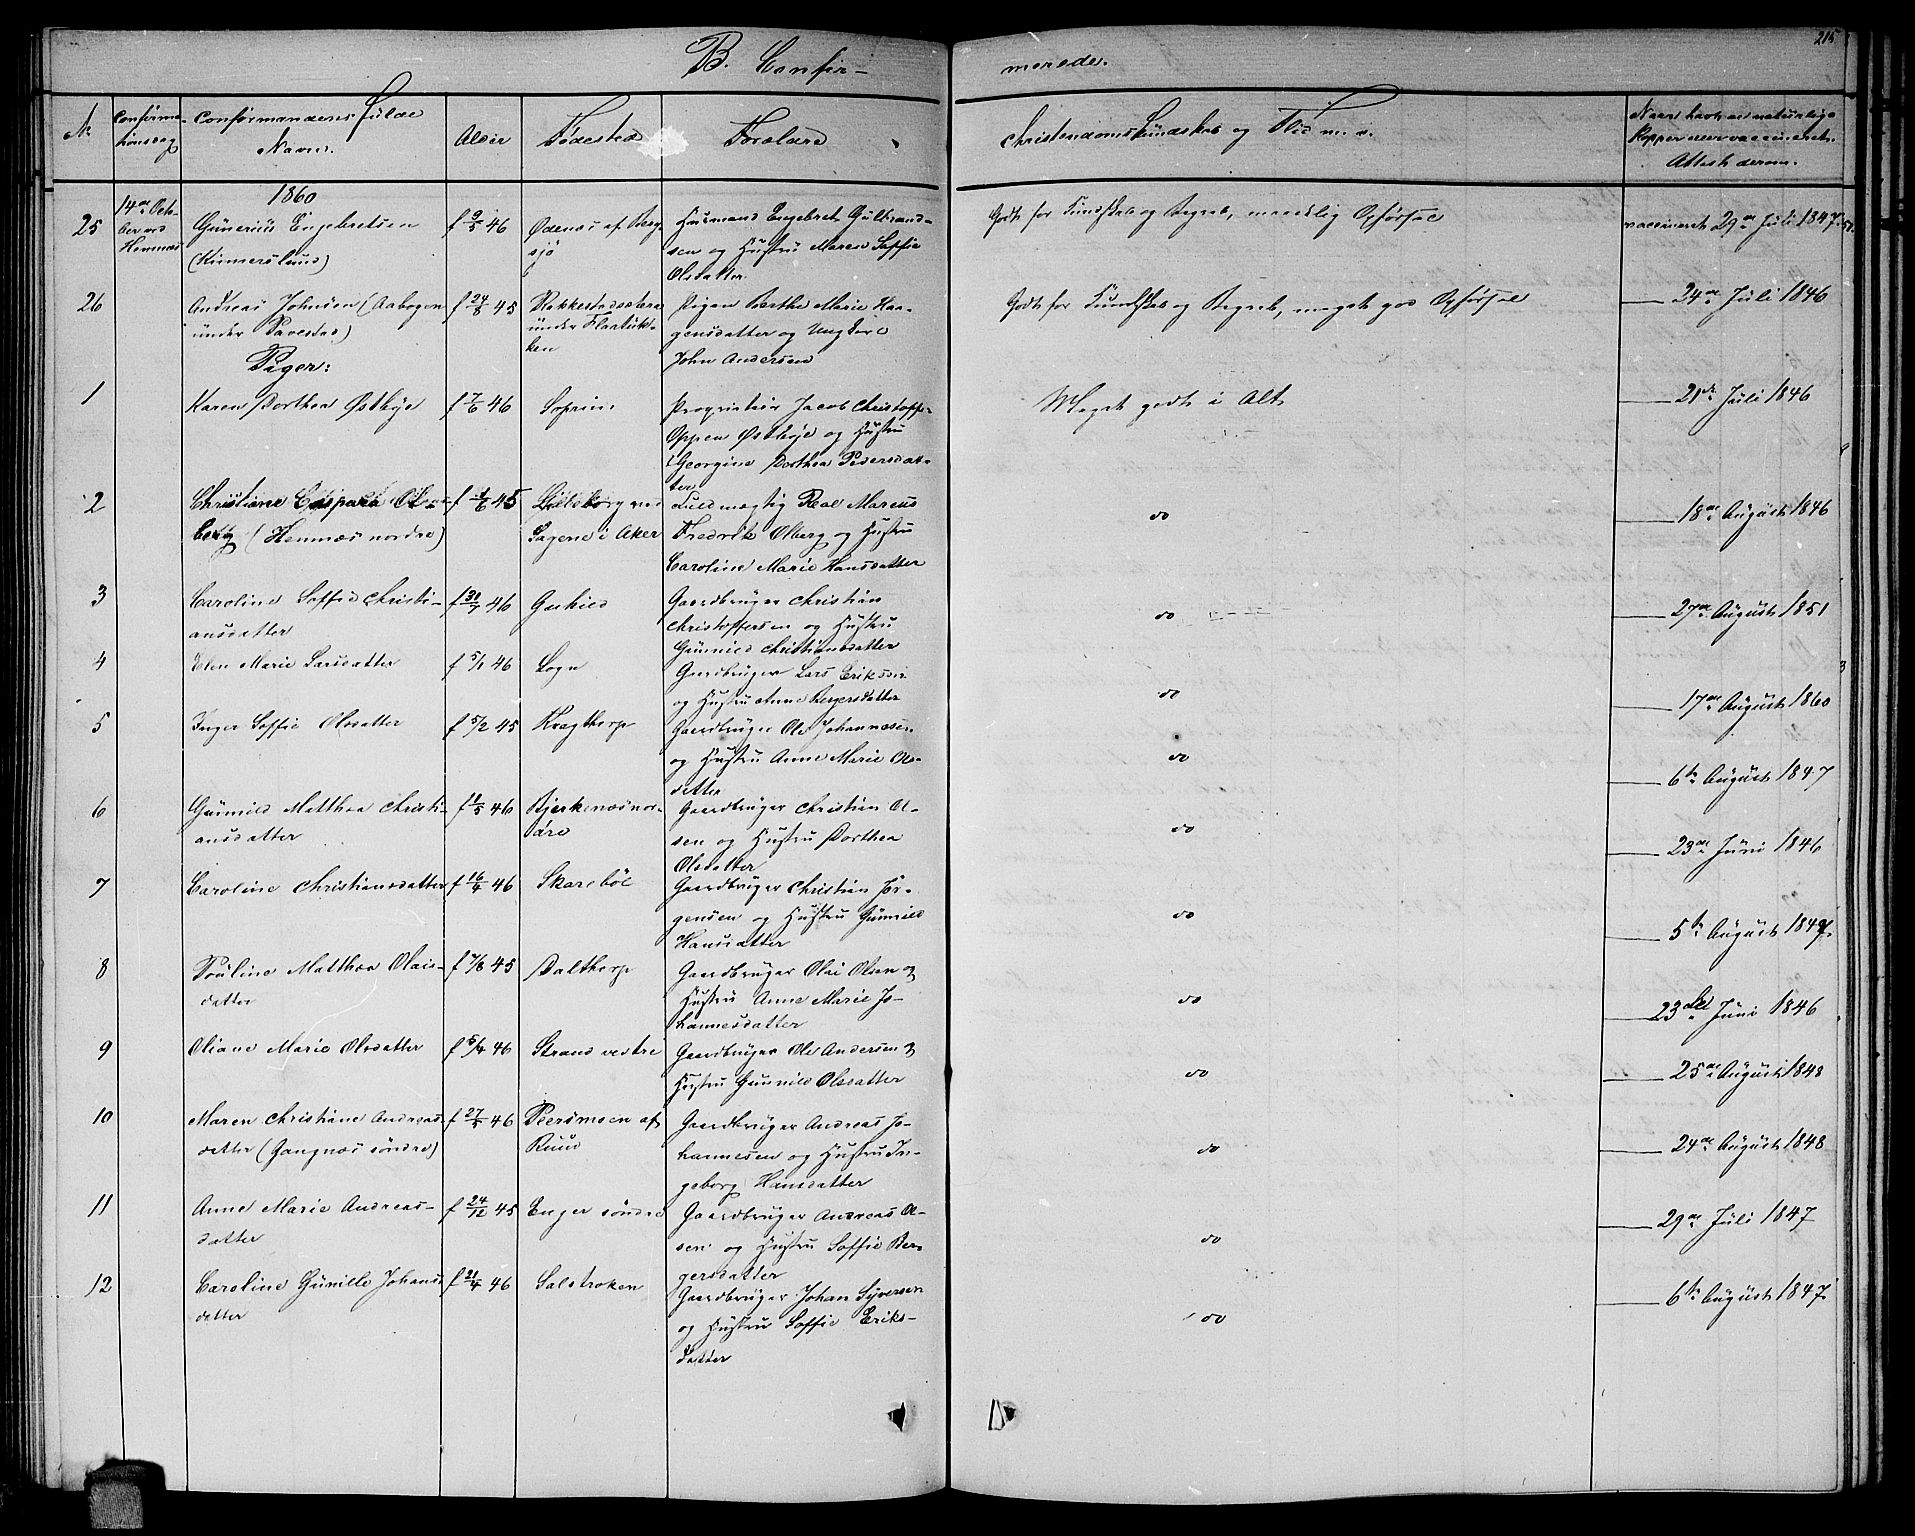 215
B. Confir- merede.
No Confirmationsdag Confirmandens fulde Navn. Alder Födested Forældre Christendomskundskab og Flid m. v. Naar havt de naturlige Kopper eller vaccineret. Attest derom.
1860
25 14de October ved Hemnæs Günerius Engebretsen (Kinnerslund) f 9/5 46 Ödenæs af Berg-
sjö
Huusmand Engebret Gulbrand-
sen og Hustru Maren Soffie
Olsdatter.
Godt for Kundskab og Begreb, maadelig Opførsel vaccineret 29de Juli 1847
26 Andreas Johnsen (Aabogen
under Pavestad) f 24/8 45 Rakkestadsætre
under
Pigen Berthe Marie Haa-
gensdatter og Ungkarl
John Andersen
Godt for Kundskab og Begreb, meget god Opførsel 24de Juli 1846
Piger:
1 Karen Dorthea Østbye f 7/6 46 Soprim
Proprietær Jacob Christoffer
Oppen Østbye og Hustru
Georgine Dorthea Pedersdat-
ter
Meget godt i Alt 21de Juli 1846
2 Christiane Caspara Ol-
berg (Hemnæs nordre) f 1/6 45 ved
Sagene i Aker
Fuldmægtig Real Marcus
Fredrik Olberg og Hustru
Caroline Marie Hansdatter
do 18de August 1846
3 Caroline Soffie Christi-
ansdatter f 31/7 46
Gaardbruger Christian
Christoffersen og Hustru
Gunnild Christiansdatter
do 27de August 1851
4 Elen Marie Larsdatter f 5/1 46 Sogn
Gaardbruger Lars Eriksen
og Hustru Anne Bergersdatter
do 17de August 1860
5 Inger Soffie Olsdatter f 5/2 45 Kragtorp
Gaardbruger Ole Johannesen
og Hustru Anne Marie Ols-
datter
do 6te August 1847
6 Gunnild Matthea Christi-
ansdatter f 1/5 46 Bjerkenæs nor-
dre
Gaardbruger Christian Ol-
sen og Hustru Dorthea
Olsdatter
do 23de Juni 1846
7 Caroline Christiansdatter f 16/4 46 Skareböl
Gaardbruger Christian Jör-
gensen og Hustru Gunnild
Hansdatter
do 5te August 1847
8 Pouline Matthea Olais-
datter f 7/8 45 Dalthorp
Gaardbruger Olai Olsen og
Hustru Anne Marie Jo-
hannesdatter
do 23de Juni 1846
9 Oliane Marie Olsdatter f 5/4 46 Strand vestre
Gaardbruger Ole Andersen og
Hustru Gunnild Olsdatter
do 25de August 1848
10 Maren Christiane Andreas-
datter (Gangnæs söndre) f 27/4 46 Peersmoen af
Ruud
Gaardbruger Andreas Jo-
hannesen og Hustru In-
geborg Hansdatter
do 24de August 1848
11 Anne Marie Andreas-
datter f 24/12 45 Enger söndre
Gaardbruger Andreas Ol-
sen og Hustru Soffie Ber-
gersdatter
do 29de Juli 1847
12 Caroline Gunille Johans-
datter f 21/4 46 Salstroken
Gaardbruger Johan Syversen
og Hustru Soffie Eriks-
datter
do 6te August 1847